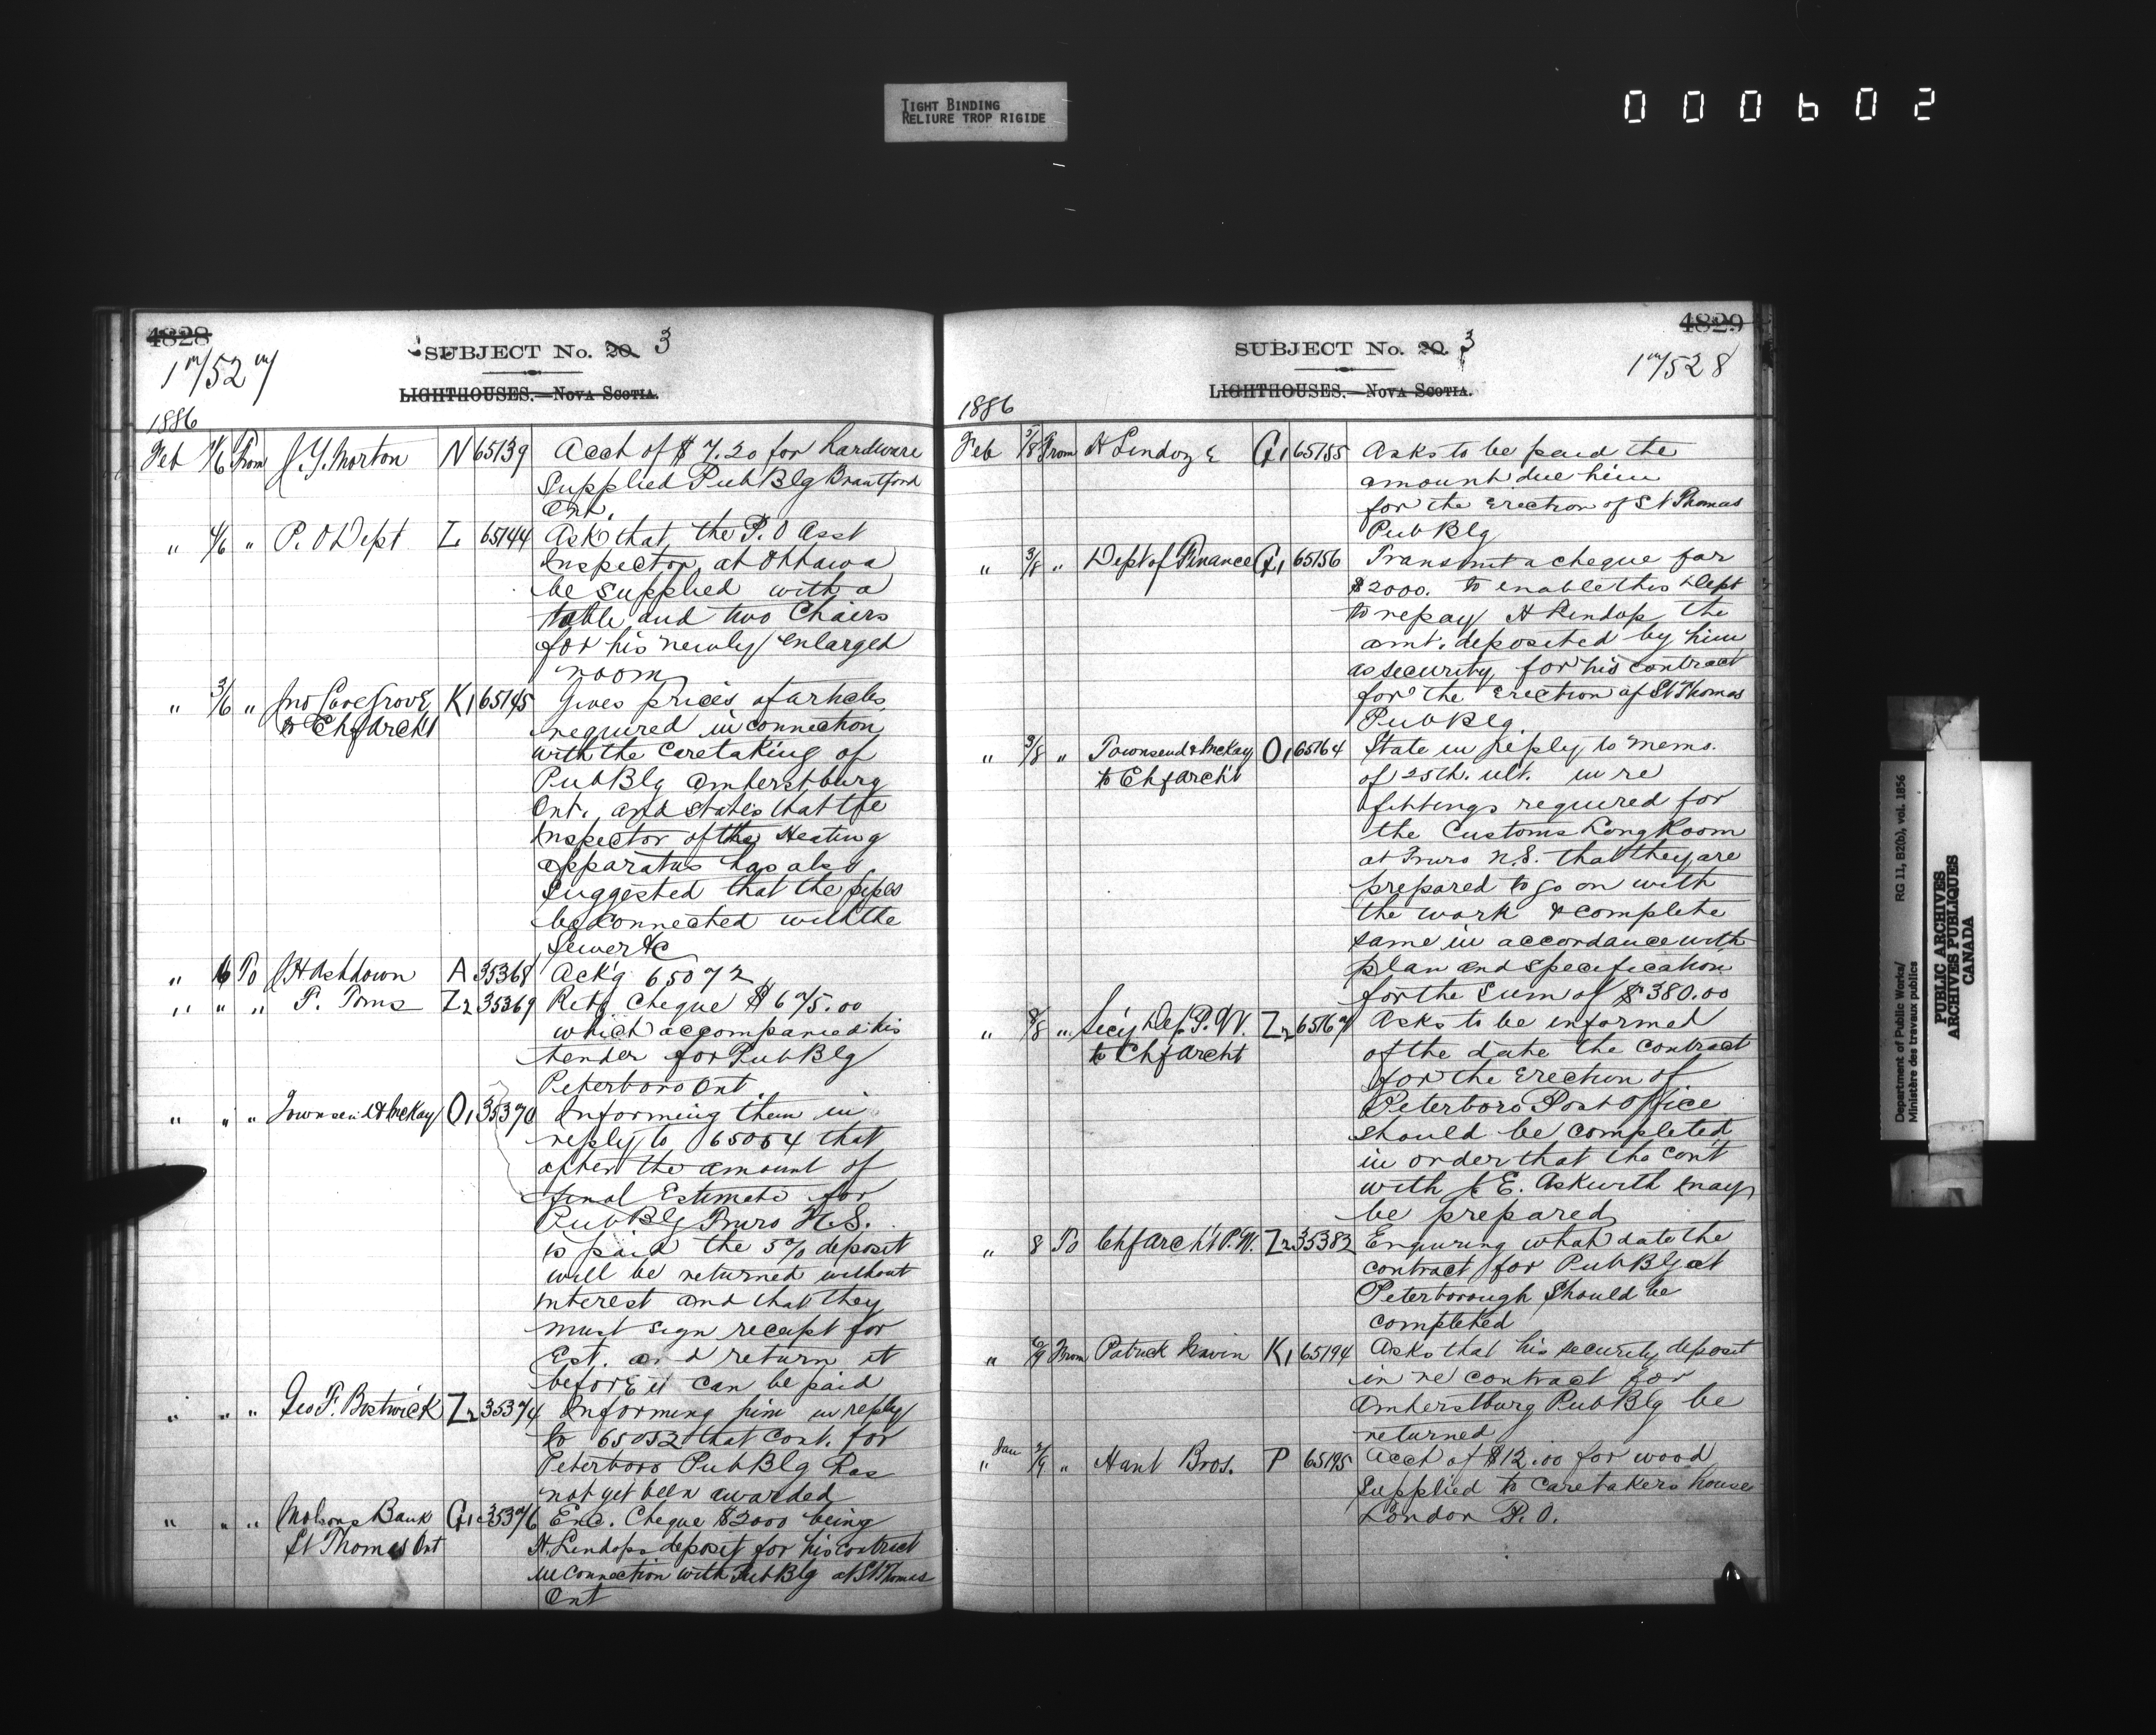 TIGHT BINDING
RELIURE TROP RIGIDE
000602
4828
SUBJECT No. 20. 3
1m/527
LIGHTHOUSES.—NOVA SCOTIA.
1886
Feb 4/6 From J. Y. Morton N 65139 Acct of $7.20 for hardware
Supplied Pub Blg Brantford
Ont.
" 4/6 " P. O Dept L 65144 Ask that the P. O Asst
Inspector at Ottawa
be supplied with a
table and two Chairs
for his newly enlarged
room
" 3/6 " Jno Lovegrove K1 65145 Gives prices of articles
to Chf Archt required in connection
with the caretaking of
Pub Blg Amherstburg
Ont. and states that the
Inspector of the Heating
apparatus has also
Suggested that the pipes
be connected with the
Sewer &c
" 6 To J H Ashdown A 35368 Ackg 65072
" " " F. Toms Z2 35369 Retg. cheque $675.00
which accompanied his
tender for Pub Blg
Peterboro Ont.
" " " Townsend & McKay O1 35370 Informing them in
reply to 65054 that
after the amount of
final Estimate for
Pub Blg Truro N.S.
is paid the 5% deposit
will be returned without
interest and that they
must sign receipt for
Est. and return it
before it can be paid
" " " Geo F. Bostwick Z2 35374 Informing him in reply
to 65052 that Cont. for
Peterboro Pub Blg has
not yet been awarded
" " " Molsons Bank G1 35376 Enc. Cheque $2000 being
St Thomas Ont H. Lindops deposit for his contract
in connection with Pub Blg at St Thomas
Ont
4829
SUBJECT No. 20. 3
1m/528
LIGHTHOUSES.—NOVA SCOTIA.
1886
Feb 5/8 From H G1 65155 Asks to be paid the
amount due him
for the Erection of St Thomas
Pub Blg
" 3/8 " Dept of Finance G1 65156 Transmit a cheque for
$2000. to enable this Dept
to repay H Lindop the
amt. deposited by him
as security for his contract
for the Erection of St Thomas
Pub Blg
" 3/8 " Townsend & McKay O1 65164 State in reply to mems.
to Chf Archt of 25th. ult. in re
fittings required for
the Customs Long Room
at Truro N.S. that they are
prepared to go on with
the work & complete
same in accordance with
plan and specification
for the Sum of $380.00
" 8/8 " Secy Dep. P. W. Z2 65167 Asks to be informed
to Chf Archt of the date the contract
for the Erection of
Peterboro Post Office
should be completed
in order that the cont
with J. E. Askwith may
be prepared
" 8 To Chf Archt P. W. Z2 35382 Enquiring what date the
contract for Pub Blg at
Peterborough should be
completed
" 6/9 From Patrick Navin K1 65194 Asks that his security deposit
in re contract for
Amherstburg Pub Blg be
returned
Jan
" 2/9 " Hunt Bros. P 65195 Acct of $12.00 for wood
supplied to caretakers house
London P. O.
Department of Public Works/ RG 11, B2(b), vol. 1856
Ministère des travaux publics
PUBLIC ARCHIVES
ARCHIVES PUBLIQUES
CANADA